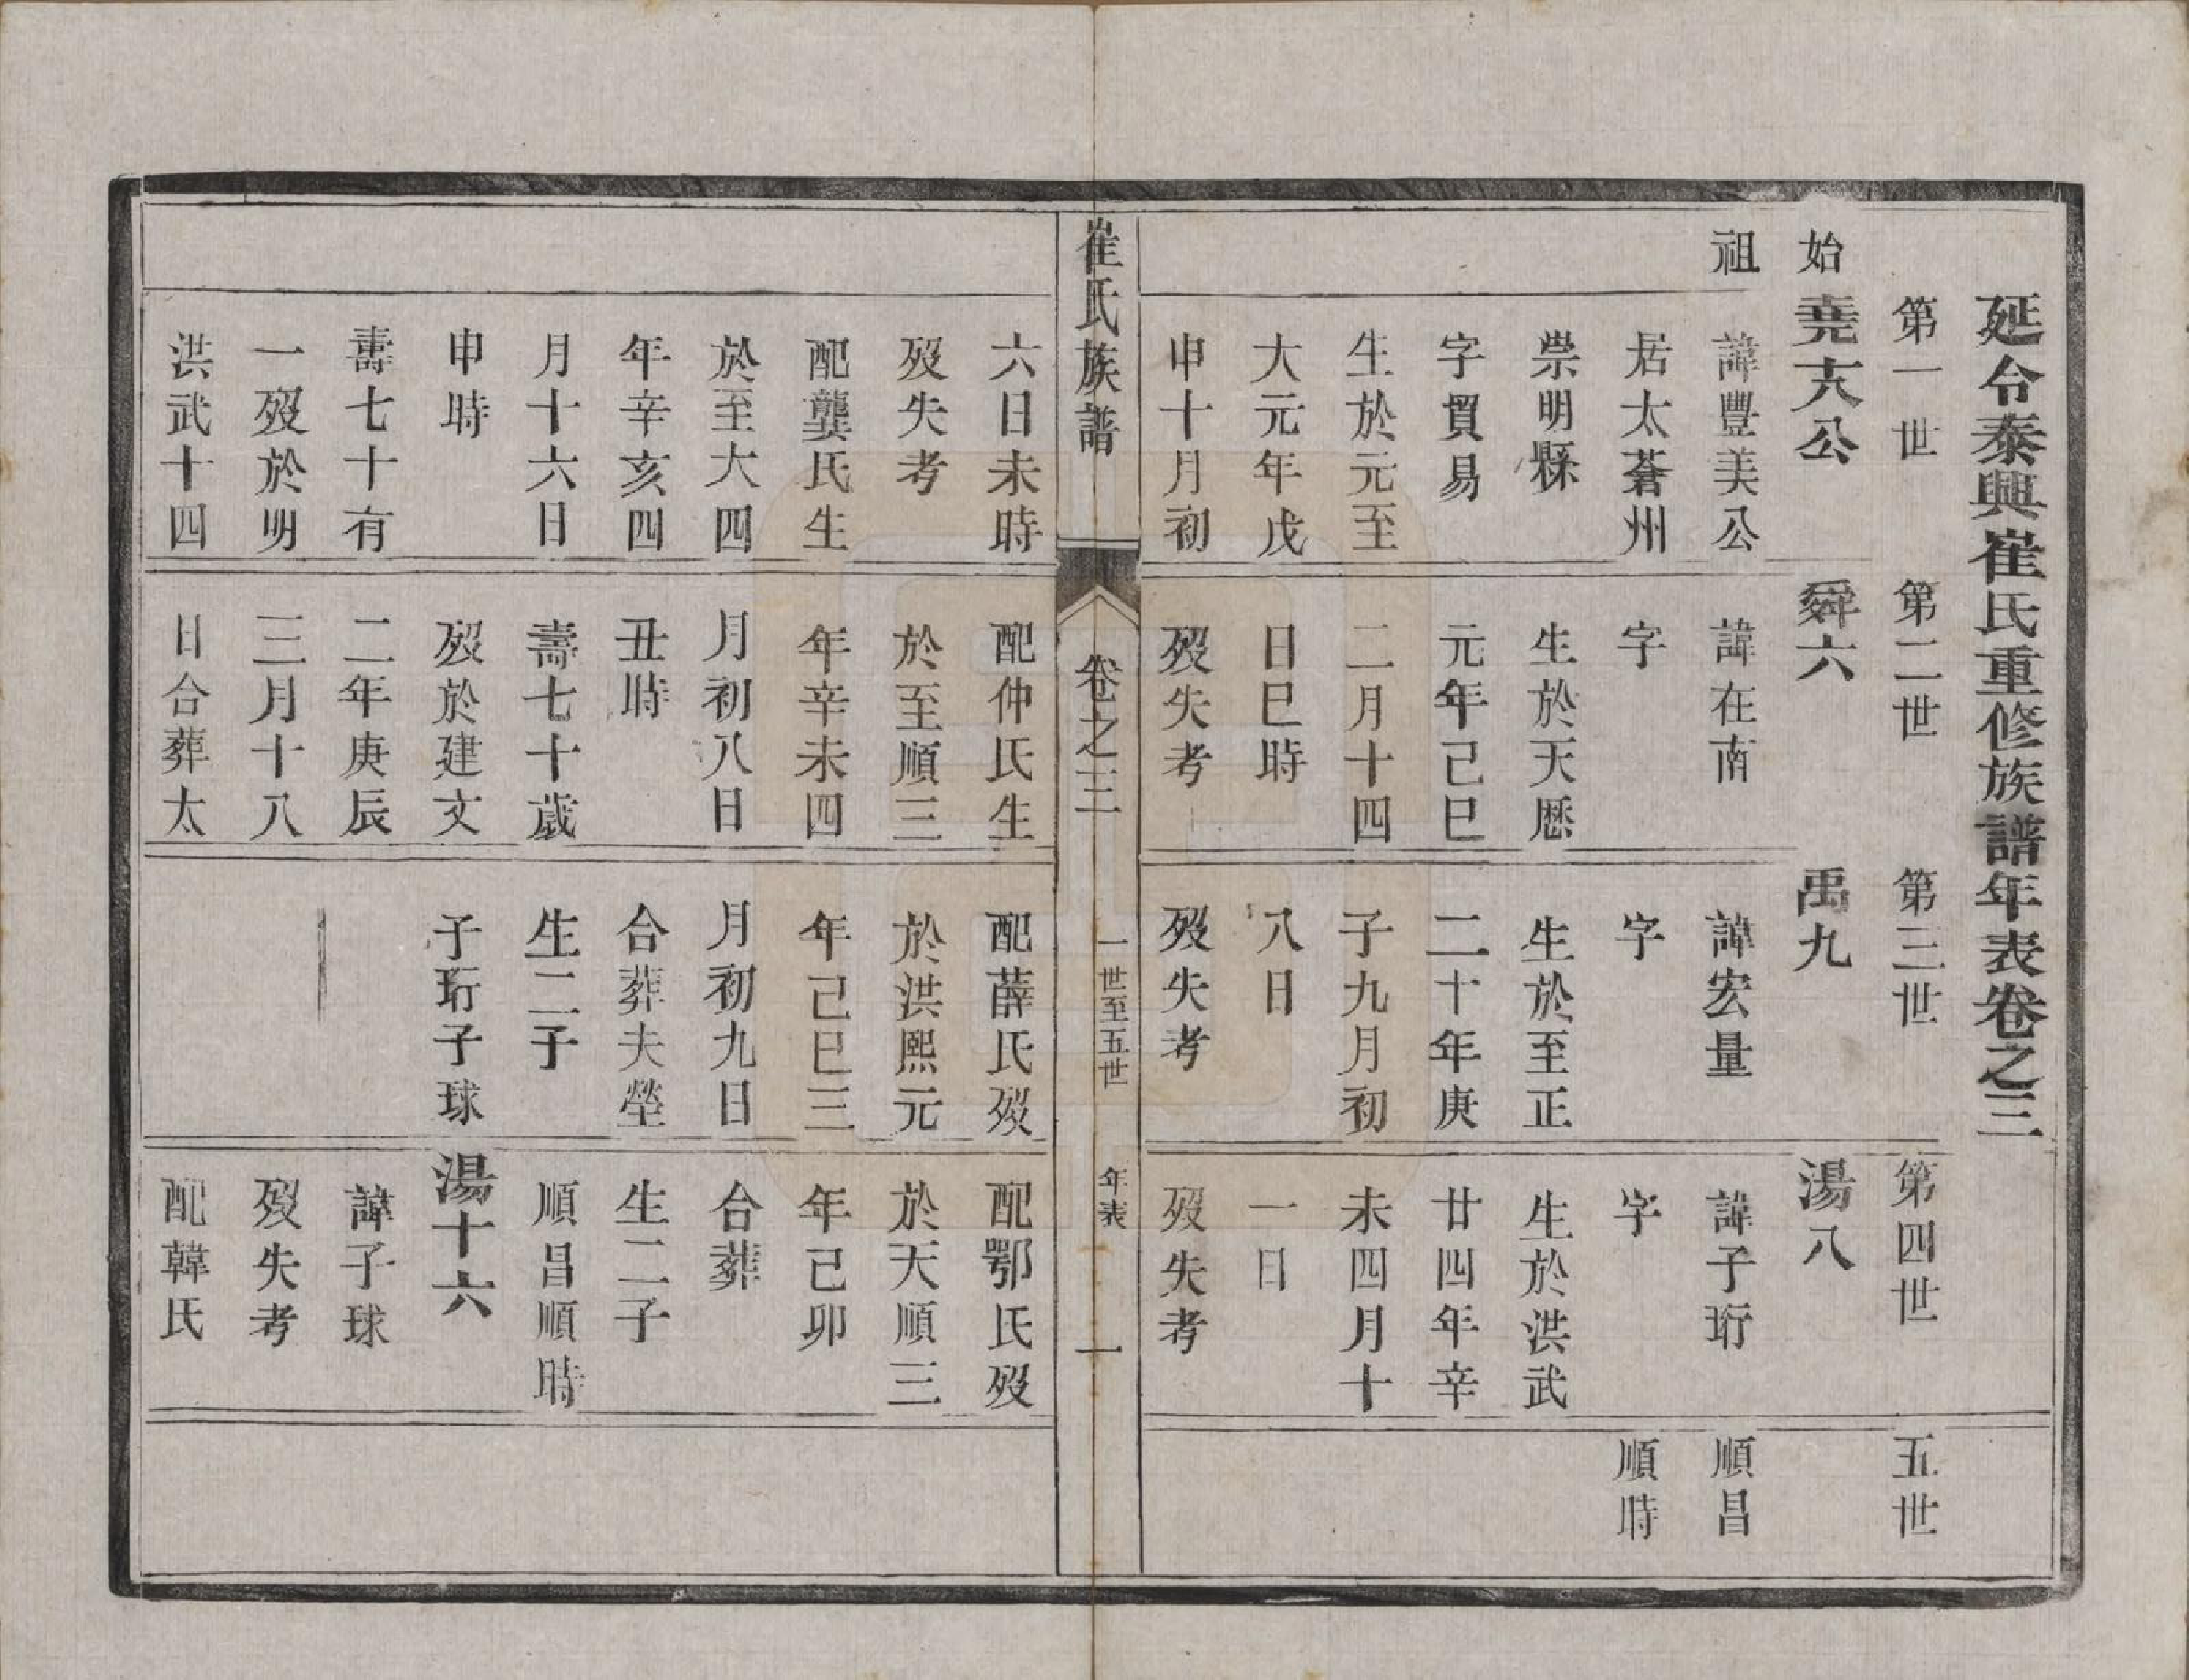 延令泰興崔氏重修族譜年表卷之三
第一世
第二世
第三世
第四世
五世
始
祖
堯六公
諱豐美公
居太蒼州
崇明縣
字貿易
生於元至
大元年戊
申十月初
舜六
諱在南
字
生於天厯
元年己巳
二月十四
日巳時
歿失考
禹九
諱宏量
字
生於至正
二十年庚
子九月初
八日
歿失考
湯八
諱子珩
字
生於洪武
廿四年辛
未四月十
一日
歿失考
順昌
順時
崔氏族譜
卷之三
一世至五世
年表
一
六日未時
歿失考
配龔氏生
於至大四
年辛亥四
月十六日
申時
壽七十有
一歿於明
洪武十四
配仲氏生
於至順三
年辛未四
月初八日
丑時
壽七十歲
歿於建文
二年庚辰
三月十八
日合葬太
配薛氏歿
於洪熙元
年己巳三
月初九日
合葬夫塋
生二子
子珩子球
配鄂氏歿
於天順三
年己卯
合葬
生二子
順昌順時
湯十六
諱子球
歿失考
配韓氏